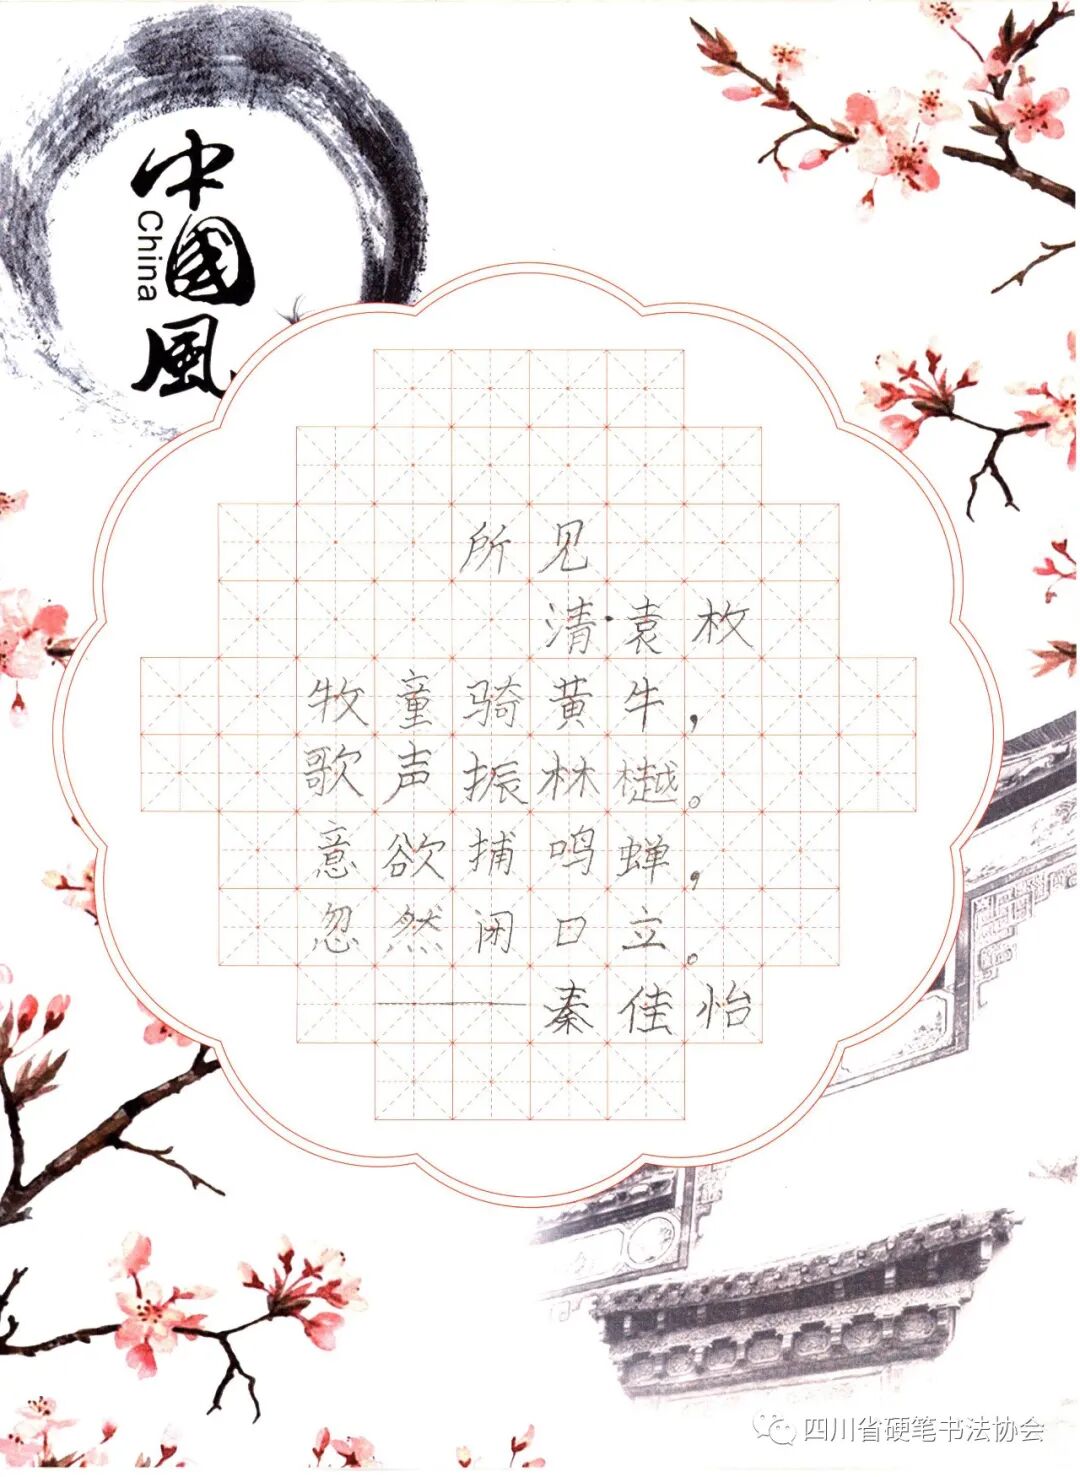 中國風
China
所见
清·袁枚
牧童骑黄牛，
歌声振林樾。
意欲捕鸣蝉，
忽然闭口立。
——秦佳怡
四川省硬笔书法协会